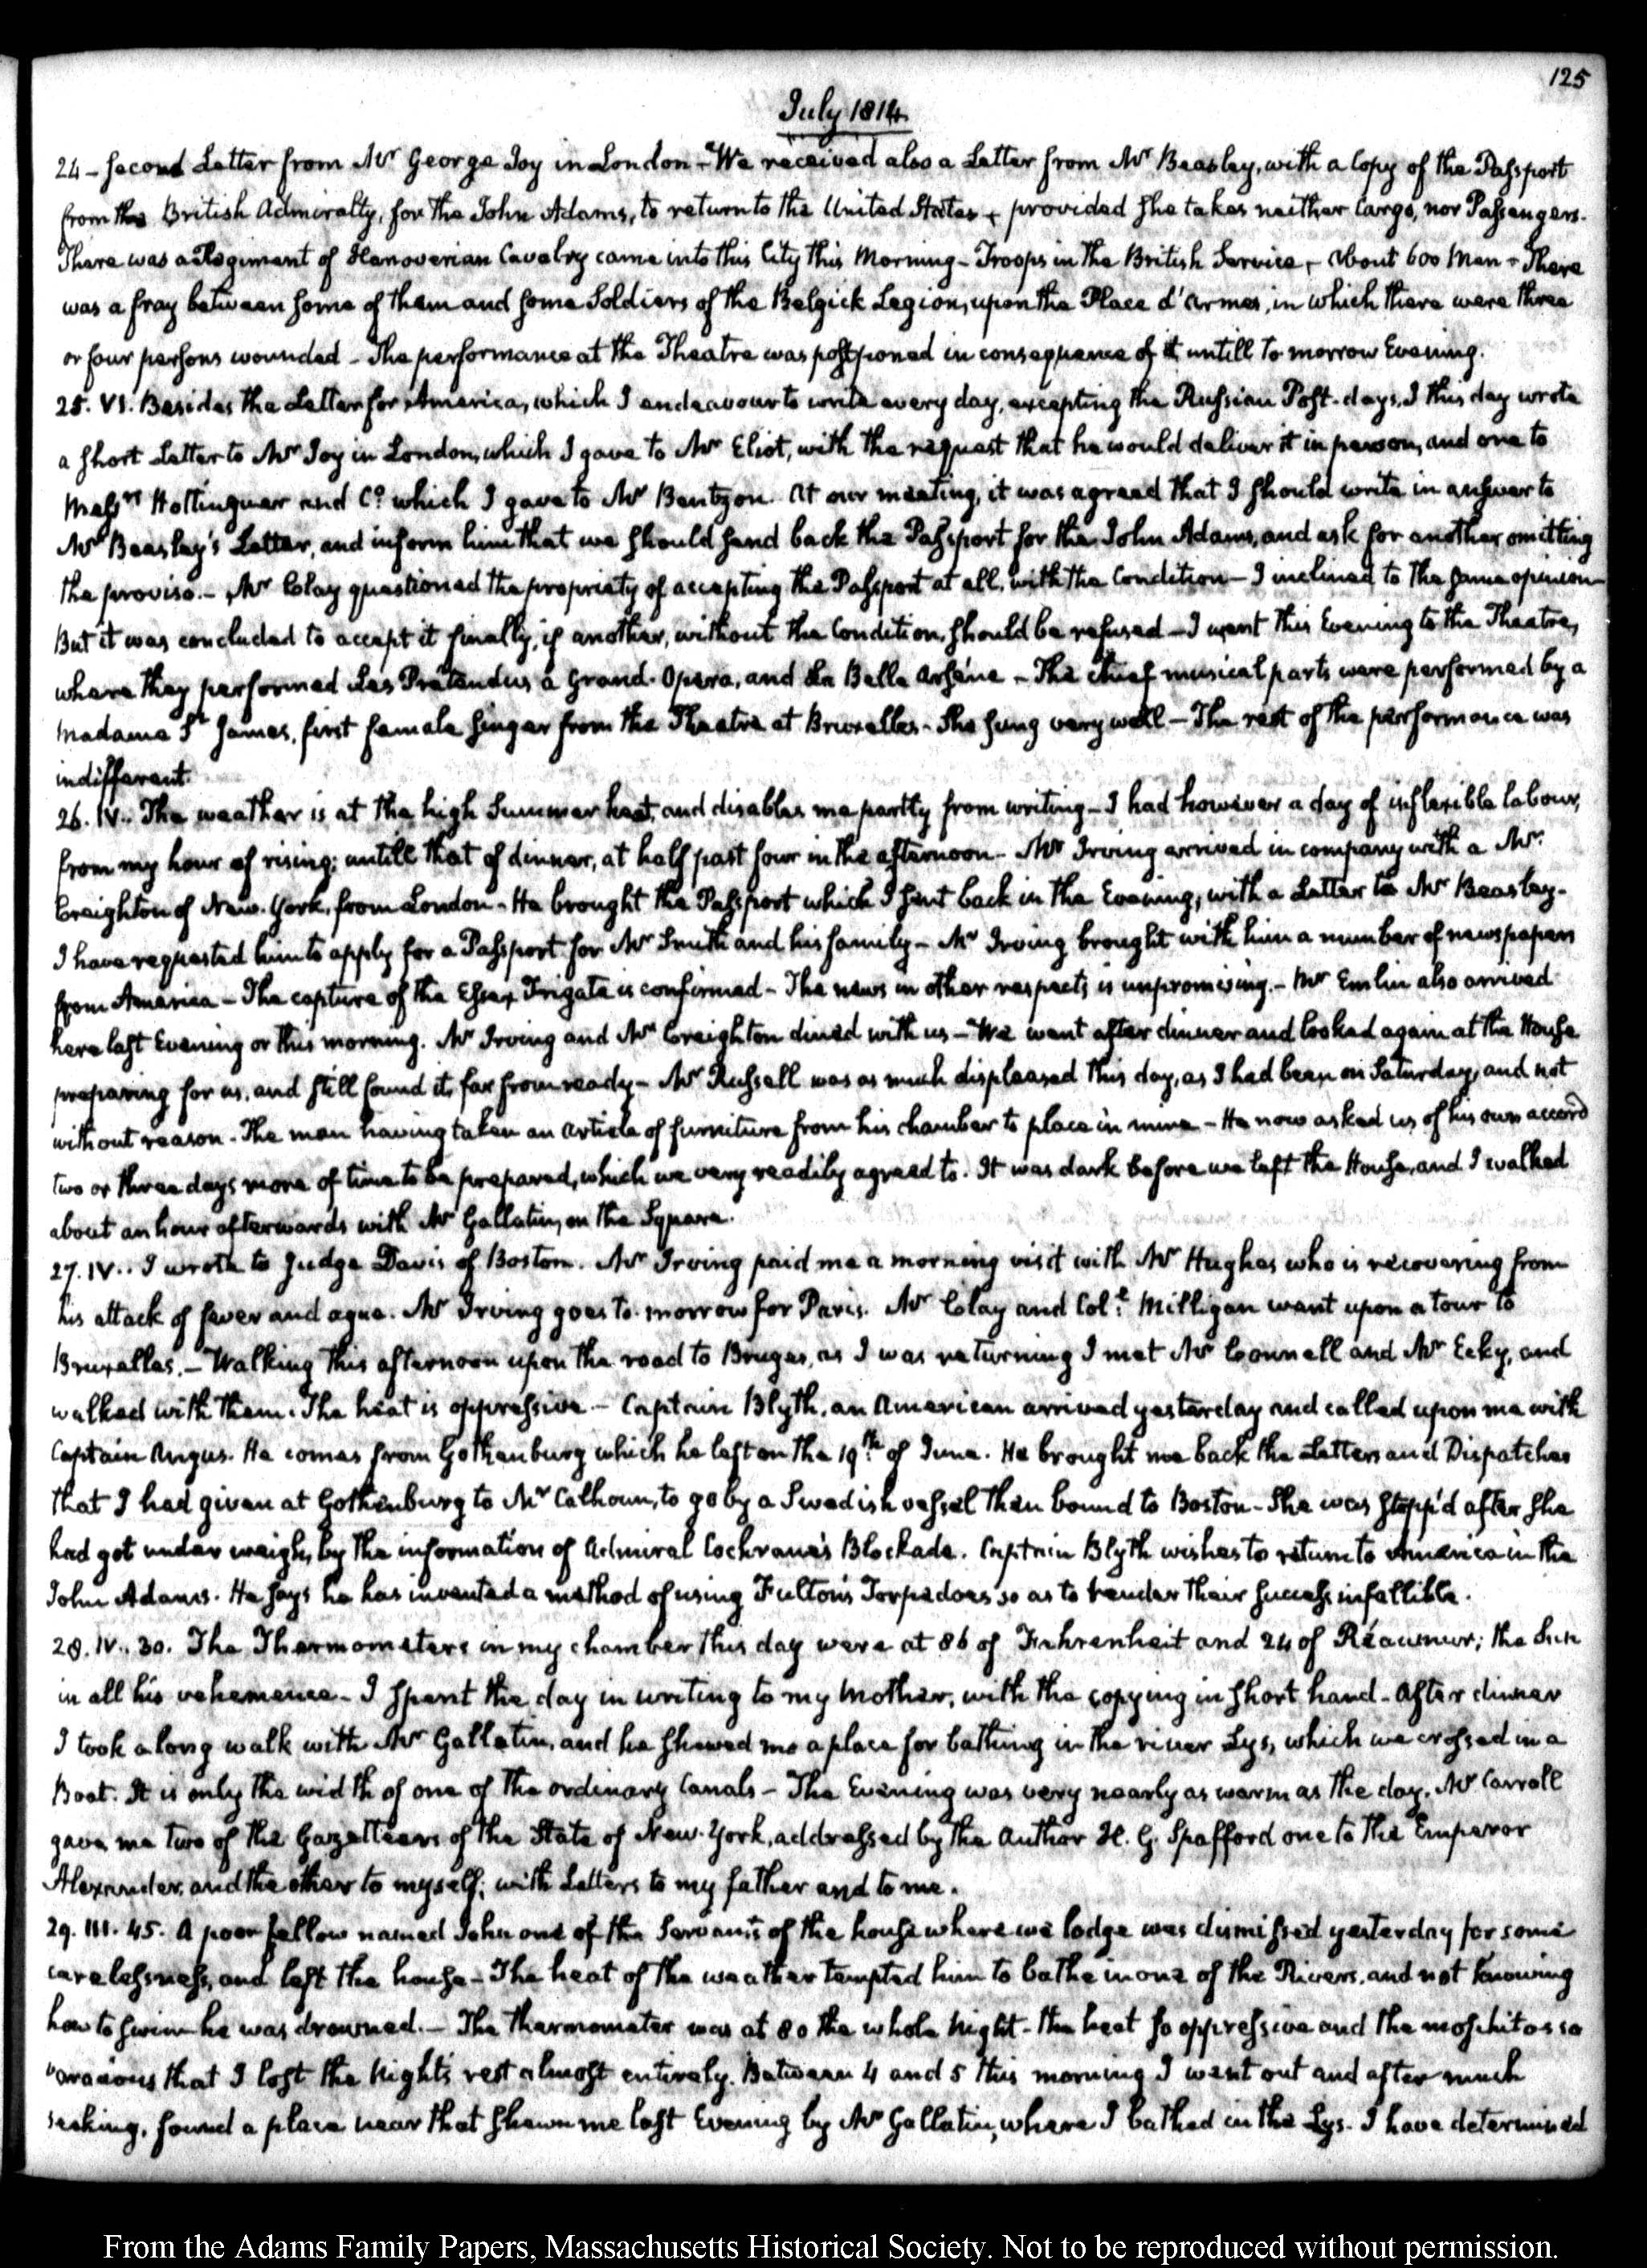 125
July 1814.
24 - second Letter from Mr George Joy in London - We received also a Letter from Mr Beasley, with a Copy of the Passport
from the British Admiralty, for the John Adams, to return to the United States, provided she takes neither Cargo, nor Passengers.
There was a Regiment of Hanoverian Cavalry came into this City this Morning - Troops in the British Service, - about 600 Men - There
was a fray between some of them and some Soldiers of the Belgick Legion, upon the Place d'armes, in which there were three
or four persons wounded - The performance at the Theatre was postponed in consequence of it untill to morrow Evening.
25. VI. Besides the Letter for America, which I endeavour to write every day, excepting the Russian Post-days, I this day wrote
a short Letter to Mr Joy in London, which I gave to Mr Eliot, with the request that he would deliver it in person, and one to
Messrs Hottinguer and Co. which I gave to Mr Bentzon. At our meeting, it was agreed that I should write in answer to
Mr Beasley's Letter, and inform him that we should send back the Passport for the John Adams, and ask for another omitting
the proviso. - Mr Clay questioned the propriety of accepting the Passport at all, with the Condition - I inclined to the same opinion -
But it was concluded to accept it finally, if another, without the Condition, should be refused - I went this Evening to the Theatre,
where they performed Les Prétendus a Grand-Opera, and La Belle Arsène - The chief musical parts were performed by a
Madame St James, first female singer from the Theatre at Bruxelles - She sung very well - The rest of the performance was
indifferent.
26. IV.. The weather is at the high Summer heat, and disables me partly from writing - I had however a day of inflexible labour,
from my hour of rising; untill that of dinner, at half past four in the afternoon - Mr Irving arrived in company with a Mr.
Creighton of New-York, from London - He brought the Passport which I sent back in the Evening, with a Letter to Mr Beasley -
I have requested him to apply for a Passport for Mr Smith and his family - Mr Irving brought with him a number of newspapers
from America - The capture of the Essex Frigate is confirmed - The news in other respects is unpromising. - Mr Emlin also arrived
here last Evening or this morning. Mr Irving and Mr Creighton dined with us - We went after dinner and looked again at the House
preparing for us, and still found it far from ready - Mr Russell was as much displeased this day, as I had been on Saturday, and not
without reason - The man having taken an article of furniture from his chamber to place in mine - He now asked us of his own accord
two or three days more of time to be prepared, which we very readily agreed to. It was dark before we left the House, and I walked
about an hour afterwards with Mr Gallatin, on the Square.
27. IV.. I wrote to Judge Davis of Boston. Mr Irving paid me a morning visit with Mr Hughes who is recovering from
his attack of fever and ague. Mr Irving goes to-morrow for Paris. Mr Clay and Coll. Milligan went upon a tour to
Bruxelles. - Walking this afternoon upon the road to Bruges, as I was returning I met Mr Connell and Mr Ecky, and
walked with them. The heat is oppressive - Captain Blyth, an American arrived yesterday and called upon me with
Captain Angus. He comes from Gothenburg which he left on the 19th. of June. He brought me back the Letters and Dispatches
that I had given at Gothenburg to Mr Calhoun, to go by a Swedish vessel then bound to Boston - She was stopp'd after she
had got under weigh, by the information of Admiral Cochrane's Blockade. Captain Blyth wishes to return to America in the
John Adams. He says he has invented a method of using Fulton's Torpedoes so as to render their success infallible.
28. IV.. 30. The Thermometers in my chamber this day were at 86 of Fahrenheit and 24 of Réaumur; the Sun
in all his vehemence - I spent the day in writing to my Mother, with the copying in short hand - After dinner
I took a long walk with Mr Gallatin, and he shewed me a place for bathing in the river Lys, which we crossed in a
Boat. It is only the width of one of the ordinary Canals - The Evening was very nearly as warm as the day. Mr Carroll
gave me two of the Gazetteers of the State of New-York, addressed by the Author H. G. Spafford one to the Emperor
Alexander, and the other to myself; with Letters to my father and to me.
29. III. 45. A poor fellow named John one of the Servants of the house where we lodge was dismissed yesterday for some
carelessness, and left the house - The heat of the weather tempted him to bathe in one of the Rivers, and not knowing
how to swim he was drowned. - The thermometer was at 80 the whole Night - the heat so oppressive and the moschitos so
voracious that I lost the Night's rest almost entirely. Between 4 and 5 this morning I went out and after much
seeking, found a place near that shewn me last Evening by Mr Gallatin, where I bathed in the Lys. I have determined
From the Adams Family Papers, Massachusetts Historical Society. Not to be reproduced without permission.